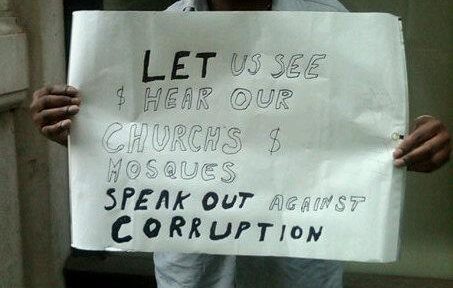 LET US SEE
$ HEAR OUR
CHURCH'S $
MOSQUES
SPEAK OUT AGAINST
CORRUPTION